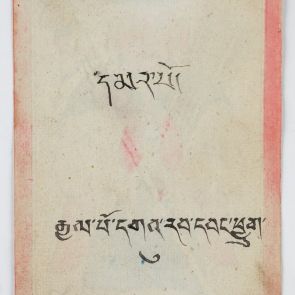 དམར་པོ།
རྒྱལ་པོ་དགའ་རབ་དབང་ཕྱུག་